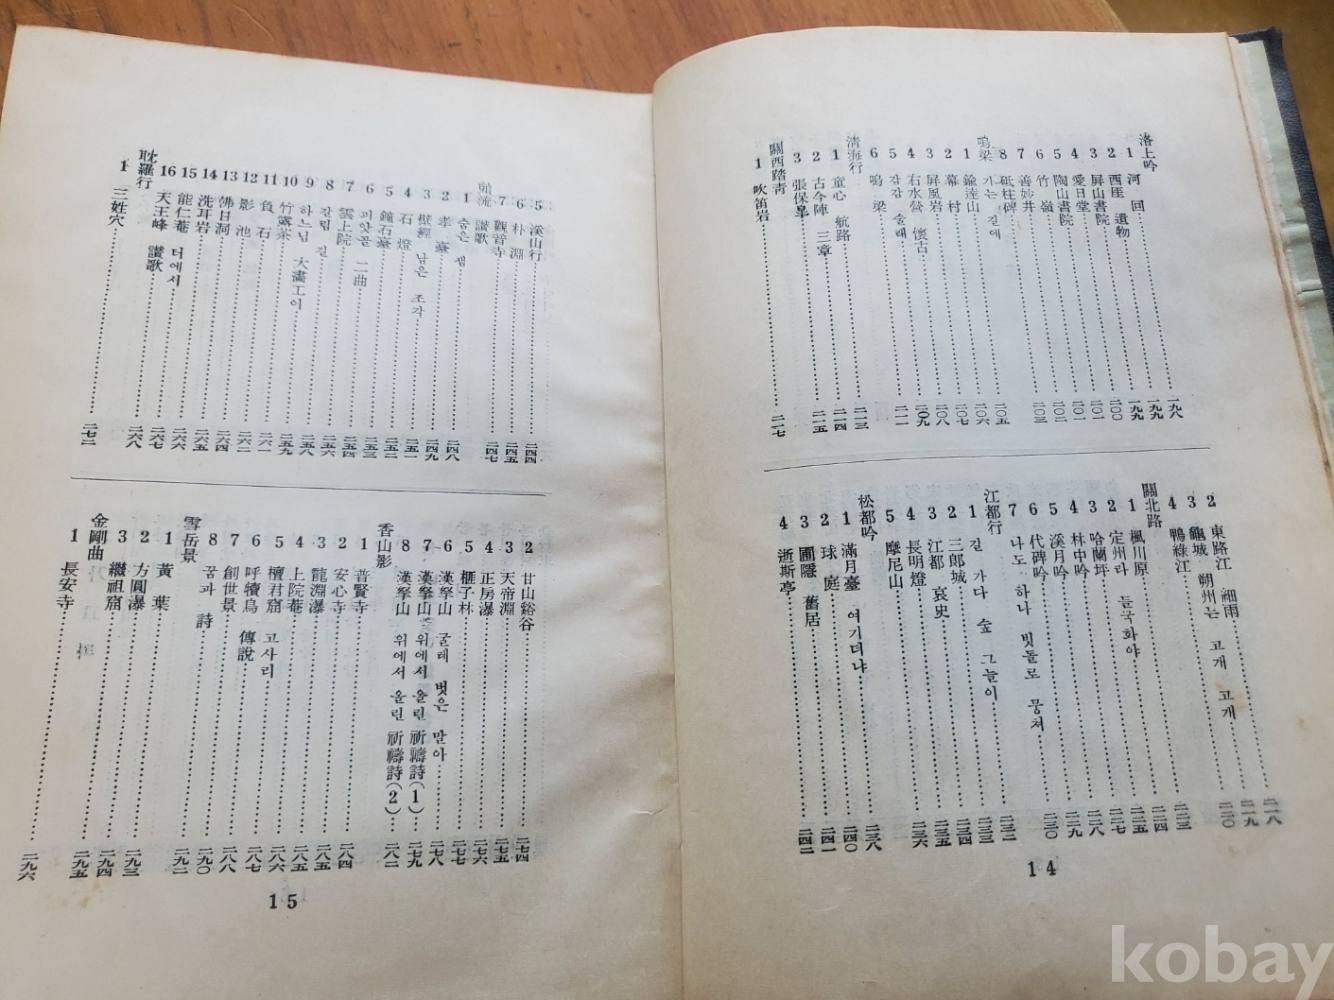 洛上吟
1 河回 一九八
2 西厓 遺物 一九九
3 屛山書院 一九九
4 愛日堂 二〇〇
5 陶山書院 二〇一
6 竹嶺 二〇一
7 善妙井 二〇二
8 砥柱碑 二〇三
鳴梁 가는 길에
1 鍮達山 二〇五
2 幕村 二〇六
3 屛風岩 二〇七
4 右水營 懷古 二〇八
5 강강술래 二〇九
6 鳴梁 二一一
淸海行
1 童心 航路 二一三
2 古今陣 三章 二一四
3 張保皐 二一五
關西踏靑
1 吹笛岩 二一七
2 東路江 細雨 二一八
3 龜城 朔州는 고개 고개 二一九
4 鴨綠江 二二〇
關北路
1 楓川原 二二三
2 定州라 들국화야 二二四
3 哈蘭坪 二二五
4 林中吟 二二七
5 溪月吟 二二八
6 代碑吟 二二九
7 나도 하나 빗돌로 뭉쳐 二三〇
江都行
1 길 가다 숲 그늘이 二三二
2 三郎城 二三三
3 江都 哀史 二三四
4 長明燈 二三五
5 摩尼山 二三六
松都吟
1 滿月臺 여기더냐 二三八
2 球庭 二四〇
3 圃隱 舊居 二四一
4 逝斯亭 二四二
14
5 溪山行 二四四
6 朴淵 二四五
7 觀音寺 二四七
頭流 讚歌
1 숨은 샘 二四八
2 孝臺 二四九
3 壁經 남은 조각 二五一
4 石燈 二五二
5 鐘石臺 二五三
6 피앗골 二曲 二五四
7 雲上院 二五六
8 칠림 길 二五八
9 하느님 大畵工이 二五九
10 竹露茶 二六一
11 負石 二六二
12 影池 二六四
13 佛日洞 二六五
14 洗耳岩 二六六
15 能仁菴 터에서 二六七
16 天王峰 讚歌 二六八
耽羅行
1 三姓穴 二七二
2 甘山谿谷 二七四
3 天帝淵 二七五
4 正房瀑 二七六
5 榧子林 二七七
6 漢拏山 굴레 벗은 말아 二七八
7 漢拏山 위에서 올린 祈禱詩(1) 二七九
8 漢拏山 위에서 올린 祈禱詩(2) 二八二
香山影
1 普賢寺 二八四
2 安心寺 二八五
3 龍淵瀑 二八五
4 上院菴 二八六
5 檀君窟 고사리 二八七
6 呼犢鳥 傳說 二八八
7 創世景 二九〇
8 꿈과 詩 二九二
雪岳景
1 黃葉 二九三
2 方圓瀑 二九四
3 繼祖窟 二九五
金剛曲
1 長安寺 二九六
15
kobay